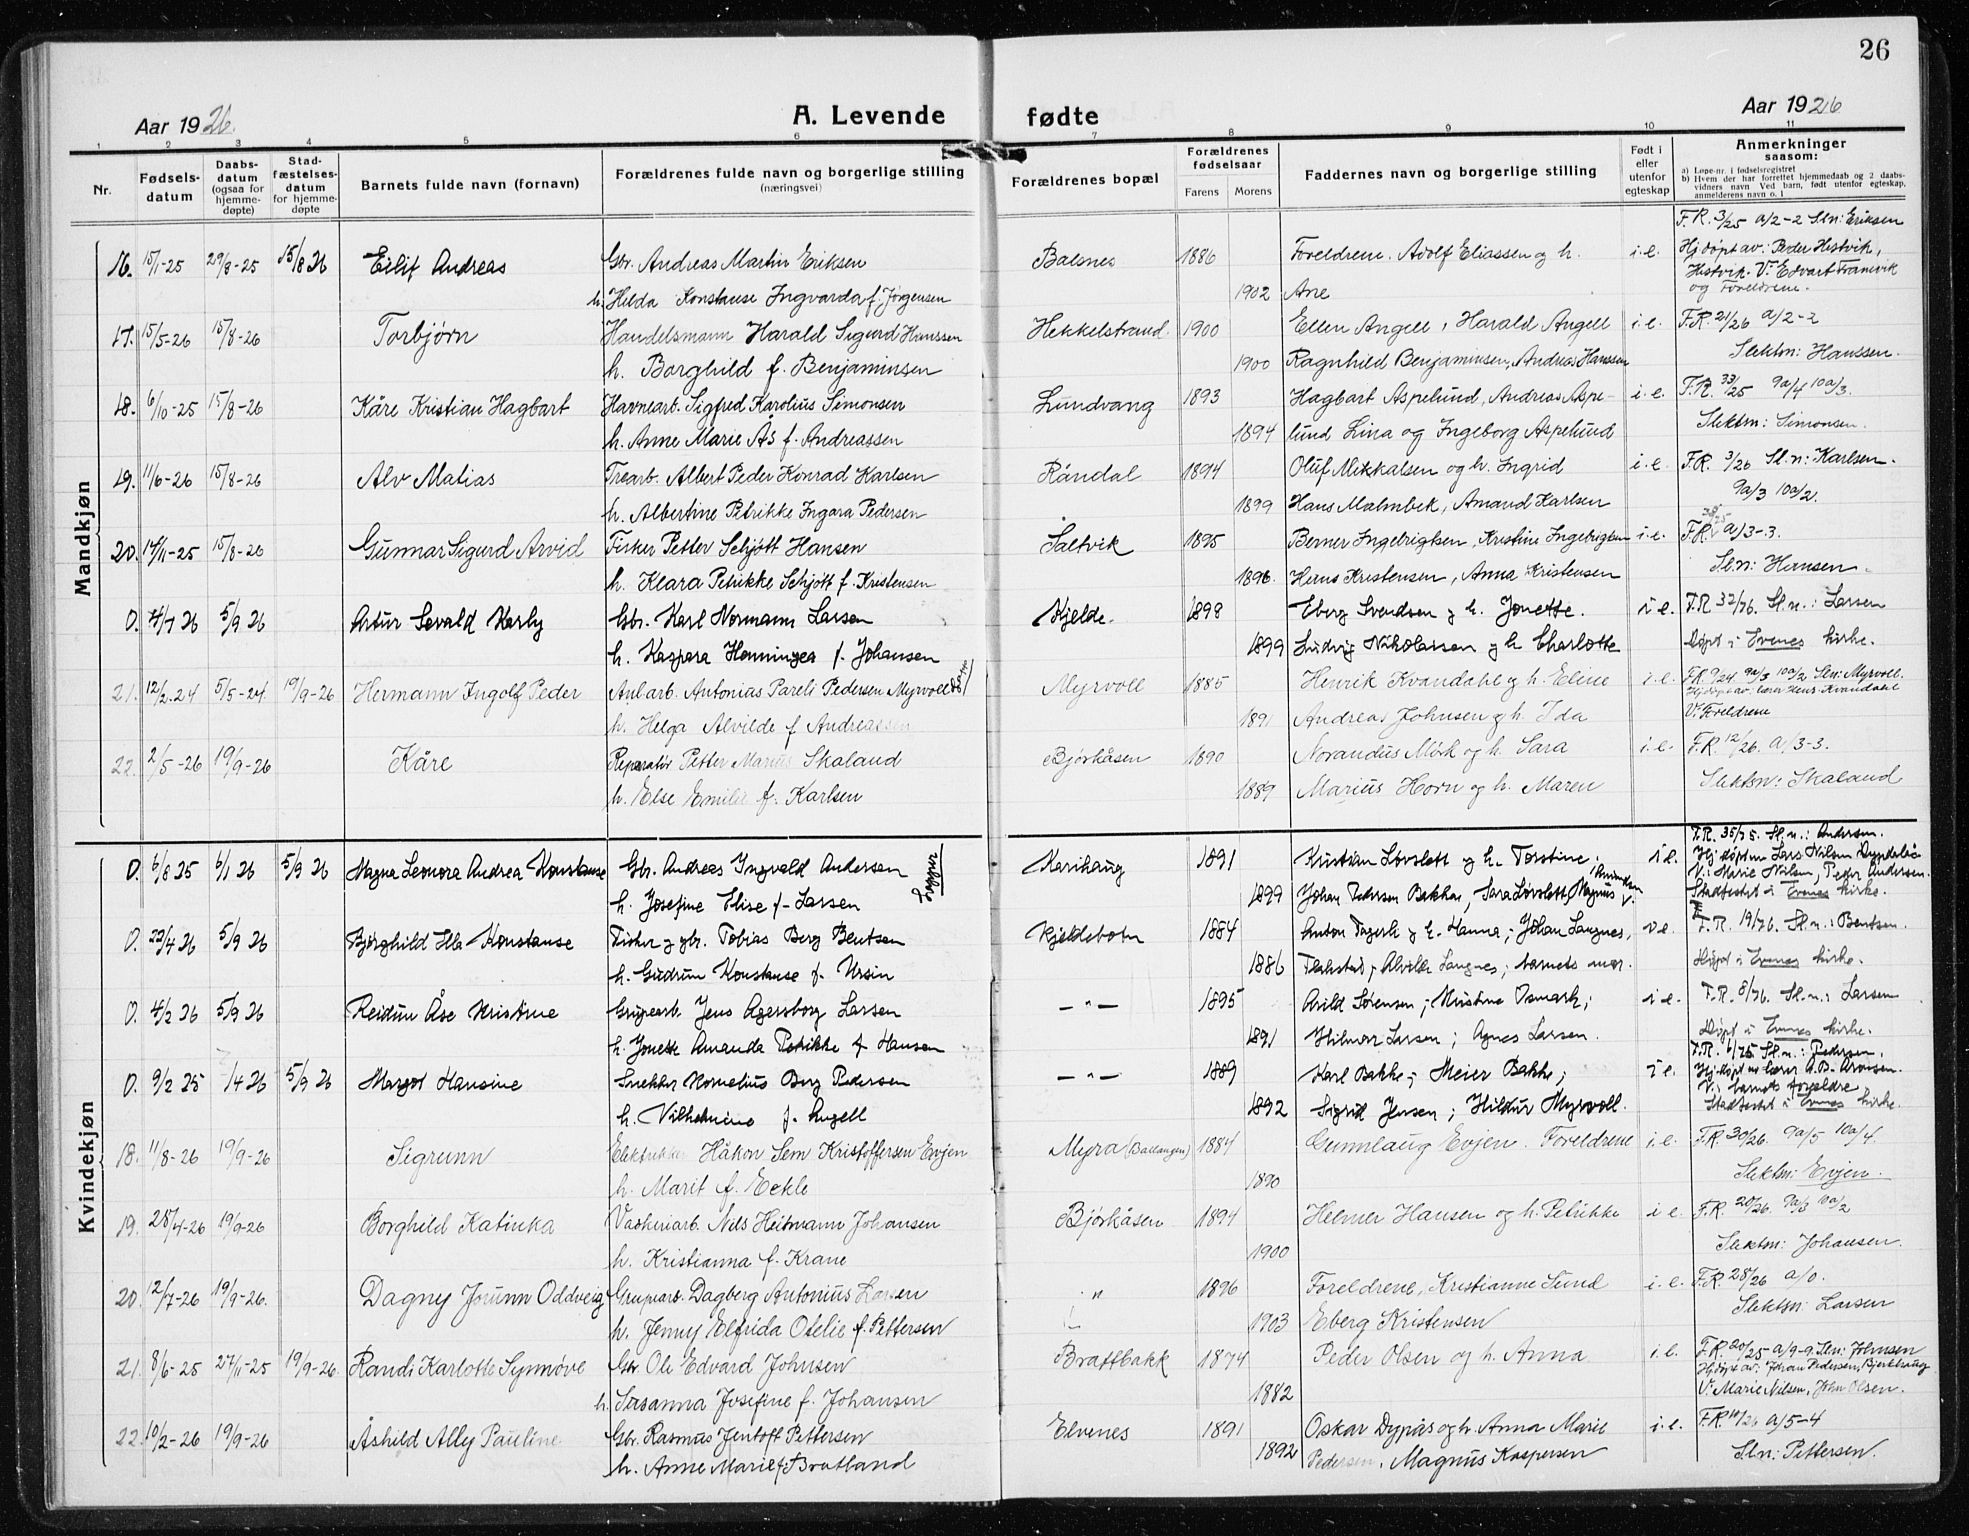 26
Aar 1926.
A. Levende
fødte
Aar 1926
1 2 3 4 5 6 7 8 9 10 11
Nr.
Fødsels-
datum
Daabs-
datum
(ogsaa for
hjemme-
døpte)
Stad-
fæstelses-
datum
for hjemme-
døpte
Barnets fulde navn (fornavn)
Forældrenes fulde navn og borgerlige stilling
(næringsvei)
Forældrenes bopæl
Forældrenes
fødselsaar
Farens Morens
Faddernes navn og borgerlige stilling
Født i
eller
utenfor
egteskap
Anmerkninger
saasom:
a) Løpe-nr. i fødselsregistret
b) Hvem der har forrettet hjemmedaab og 2 daabs-
vidners navn Ved barn, født utenfor egteskap,
anmelderens navn o. l
Mandkjøn
F.R. 3/25 a/2-2 Sl.n: Eriksen
16. 15/1-25 29/8-25 15/8 26 Eilif Andreas Gbr. Andreas Martin Eriksen Balsnes 1886 Foreldrene. Adolf Eliassen og h. i.e. Hj.døpt av: Peder Hestvik,
Hestvik. V: Edvart Framvik
h. Hilda Konstanse Ingvarda f. Jørgensen 1902 Ane og Foreldrene.
17. 15/5-26 15/8-26 Torbjørn Handelsmann Harald Sigurd Hanssen Hekkelstrand 1900 Ellen Angell, Harald Angell i.e. F.R. 21/26 a/2-2
h. Borghild f. Benjaminsen 1900 Ragnhild Benjaminsen, Andreas Hanssen Slektsn: Hanssen.
18. 6/10-25 15/8-26 Kåre Kristian Hagbart Havnearb. Sigfred Karolius Simonsen Lundvang 1893 Hagbart Aspelund, Andreas Aspe- i.e. F.R. 33/25 9a/4 10a/3.
h. Anne Marie Ås f. Andreassen 1894 lund Lina og Ingeborg Aspelund Slektsn: Simonsen.
19. 11/6-26 15/8-26 Alv Matias Trearb. Albert Peder Konrad Karlsen Råndal 1894 Oluf Mikkalsen og h. Ingrid i.e. F.R. 3/26 Sl.n: Karlsen.
h. Albertine Petrikke Ingara Pedersen 1899 Hans Malmbek, Amand Karlsen 9a/3 10a/2.
20. 14/11-25 15/8-26 Gunnar Sigurd Arvid Fisker Petter Schjøtt Hansen Saltvik 1895 Berner Ingebrigtsen, Kristine Ingebrigtsen i.e. F.R. 38/25 a/3-3.
h. Klara Petrikke Schjøtt f. Kristensen 1896. Hans Kristensen, Anna Kristensen Sl.n: Hansen.
0. 4/7 26 5/9 26 Artur Sevald Karly Gbr. Karl Normann Larsen Kjelde. 1898 Eberg Svendsen og h. Jonette. i.e. F.R. 32/26. Sl.n.: Larsen
h. Kaspara Henningea f. Johansen 1899 Ludvig Nikolaisen og h Charlotte Døpt i Evenes kirke.
21. 12/2.24 5/5-24 19/9-26 Hermann Ingolf Peder Anl.arb. Antonias Pareli Pedersen Myrvoll Myrvoll 1885 Henrik Kvandahl og h. Eline i.e. F.R. 9/24 9a/3 10a/2 Sl.n: Myrvoll.
Hj.døpt av: lærer Henr. Kvandahl
h. Helga Alvilde f Andreassen 1891 Andreas Johnsen og h. Ida V: Foreldrene
22. 2/5-26 19/9-26 Kåre Reparatør Petter Marius Skaland Bjørkåsen 1890 Norandus Mørk og h. Sara i.e. F.R. 12/26. a/3-3.
h. Else Emilie f. Karlsen 1889 Marius Horn og h. Maren Slektsn: Skaland
Kvindekjøn
F.R. 35/25. Sl.n.: Andersen.
0. 6/8 25 6/1 26 5/9 26 Magna Leonora Andrea Konstanse Gbr. Andreas Ingvald Andersen Karihaug 1891 Kristian Løvslett og h. Torstine; i.e. Hj.døpt av Lars Nilsen
V.: Marie Nilsen, Peder Andersen.
h. Josefine Elise f. Larsen 1899 Johan Pedersen Bakken, Sara Løvslett, Magnus Stadfestet i Evenes kirke.
0. 23/4 26 5/9 26 Borghild Ila Konstanse Fisker og gbr. Tobias Berg Bentsen Kjeldebotn 1884 Anton Fagerli og h. Hanna; Johan Langnes, i.e. F.R. 19/26. Sl.n.: Bentsen.
h. Gudrun Konstanse f. Ursin 1886 Flakstad; Alvilde Langnes; barnets mor. Døpt i Evenes kirke.
0. 4/2 26 5/9 26 Reidun Åse Kristine Grupearb. Jens Agersborg Larsen — " — 1895 Arild Sørensen; Kristine Osmark; i.e. F.R. 8/26. Sl.n.: Larsen
h. Jonette Amanda Petrikke f Hansen 1891 Hilmar Larsen; Agnes Larsen. Døpt i Evenes kirke.
F.R. 6/25 Sl.n.: Pedersen.
0. 9/2 25 /4 26 5/9 26 Margot Hansine Snekker Kornelius Berg Pedersen — " — 1889 Karl Bakke; Meier Bakke; i.e. Hj.døpt av lærer A.B. Aronsen.
V: barnets foreldre
h. Vilhelmine f. Angell 1892 Sigrid Jensen; Hildur Myrvoll. Stadfestet i Evenes kirke.
18. 11/8-26 19/9-26 Sigrunn Elektriker Håkon Sem Kristoffersen Evjen Myra (Ballangen) 1884 Gunnlaug Evjen. Foreldrene i.e. F.R. 30/26. 9a/5 10a/4.
h. Marit f. Eckle 1890 Slektsn: Evjen.
19. 28/4-26 19/9-26 Borghild Katinka Vaskeriarb. Nils Heitmann Johansen Bjørkåsen 1894 Helmer Hansen og h. Petrikke i.e. F.R. 20/26. 9a/3 10a/2
h. Kristianna f. Krane 1900 Slektsn: Johansen.
20. 12/7-26 19/9-26. Dagny Jorunn Oddveig Grupearb. Dagberg Antonius Larsen " 1896 Foreldrene, Kristianne Lund i.e. F.R. 28/26 a/0.
h. Jenny Elfrida Otelie f. Pettersen 1903 Eberg Kristensen Slektsn: Larsen
21. 8/6-25 27/11-25 19/9-26. Randi Karlotte Synnøve Gbr Ole Edvard Johnsen Brattbakk 1874 Peder Olsen og h. Anna i.e. F.R. 20/25 a/9-9. Sl.n: Johnsen
Hj.døpt av: Johan Pedersen, Bjerkhaug
h. Susanna Josefine f. Johansen 1882 V: Marie Nilsen, John Olsen.
22. 10/2-26 19/9-26 Åshild Ally Pauline Gbr. Rasmus Jentoft Pettersen Elvenes 1891 Oskar Dypås og h. Anna Marie i.e. F.R. 10/26 a/5-4
h. Anne Marie f. Bratland 1892 Pedersen, Magnus Kaspersen Sl.n: Pettersen.